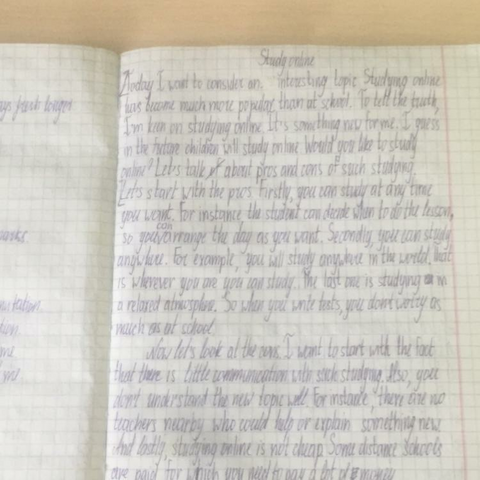 Study online
Today I want to consider an interesting topic Studying online
has became much more popular than at school. To tell the truth,
I'm keen on studying online. It's something new for me. I guess
in the future children will study online. Would you like to study
online? Let's talk about pros and cons of such studying.
Let's start with the pros. Firstly, you can study at any time
you want. For instance the student can decide when to do the lesson,
so you can arrange the day as you want. Secondly, you can study
anywhere. For example, you will study anywhere in the world, that
is wherever you are you can study. The last one is studying in
a relaxed atmosphere. So when you write tests, you don't worry as
much as at school.
Now let's look at the cons. I want to start with the fact
that there is little communication with such studying. Also, you
don't understand the new topic well. For instance, there are no
teachers nearby who could help or explain something new.
And lastly, studying online is not cheap. Some distance schools
are paid, for which you need to pay a lot of money